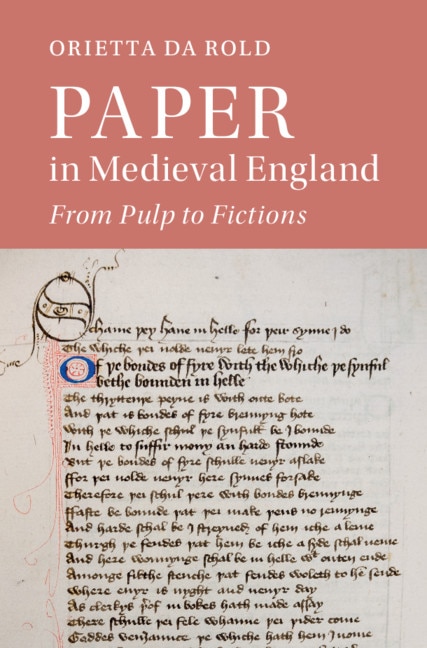 ORIETTA DA ROLD
PAPER
in Medieval England
From Pulp to Fictions
Schame þey haue in helle for þeir synne I do
The whiche þei nolde neuyr lete hem fro
Of þe bondes of fyre with the whiche þe synful
bethe bounden in helle
The thryttenþe peyne is with oute bote
And þat is bondes of fyre brennyng hote
With þe whiche schul þe synfull be I bounde
In helle to suffir mony an hard stounde
But þe bondes of fyre schulle neuyr aslake
ffor þei nolde neuyr here synnes forsake
Therefore þei schul þere with bondes brennynge
ffaste be bounde þat þei make þens no
And harde schal be I of hem iche a leme
Thurgh þe fendes þat hem be iche a syde schal
And here wonnynge schal be in helle wt outen ende
Amonge filthe stenche þat fendes woleth to he sende
Where euyr is nyght and neuyr day
As clerkys in bokes hath made assay
There schulle þei fele whanne þei þider come
Goddes venjaunce þe whiche hath hem I nome